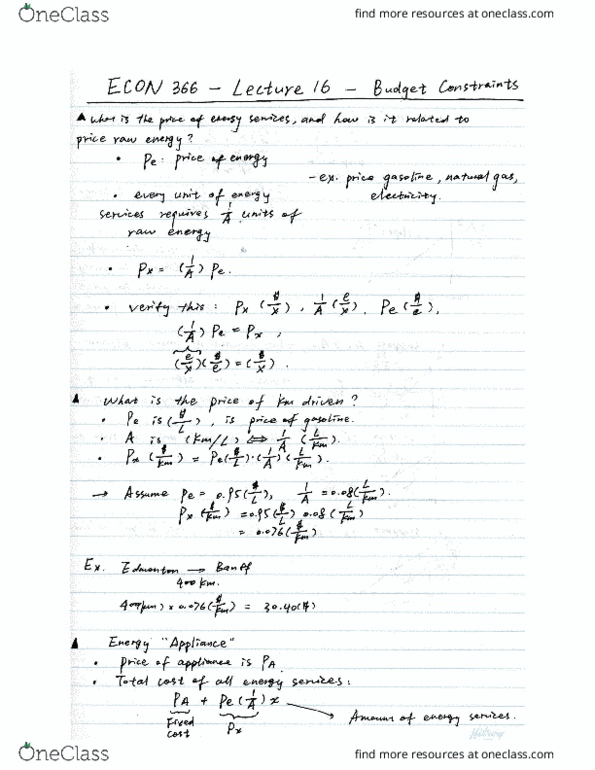 OneClass
find more resources at oneclass.com
ECON 366 - Lecture 16 - Budget Constraints
▲ what is the price of energy services, and how is it related to
price raw energy?
• Pe: price of energy
- ex. price gasoline, natural gas,
electricity.
• every unit of energy
services requires 1/A units of
raw energy
• Px = (1/A) Pe.
• verify this: Px ($/x), 1/A (e/x), Pe ($/e),
(1/A) Pe = Px,
(e/x)($/e) = ($/x).
▲ What is the price of km driven?
• Pe is ($/L), is price of gasoline.
• A is (km/L) ⟺ 1/A (L/km).
• Px ($/km) = Pe($/L)·(1/A)(L/km).
→ Assume Pe = 0.95($/L), 1/A = 0.08(L/km).
Px ($/km) = 0.95($/L) 0.08 (L/km)
= 0.076($/km)
Ex. Edmonton → Banff
400 km.
400(km) x 0.076($/km) = 30.40($)
▲ Energy "Appliance"
• Price of appliance is PA.
• Total cost of all energy services:
PA + Pe(1/A)x
Fixed
cost
Px
Amount of energy services.
OneClass
find more resources at oneclass.com